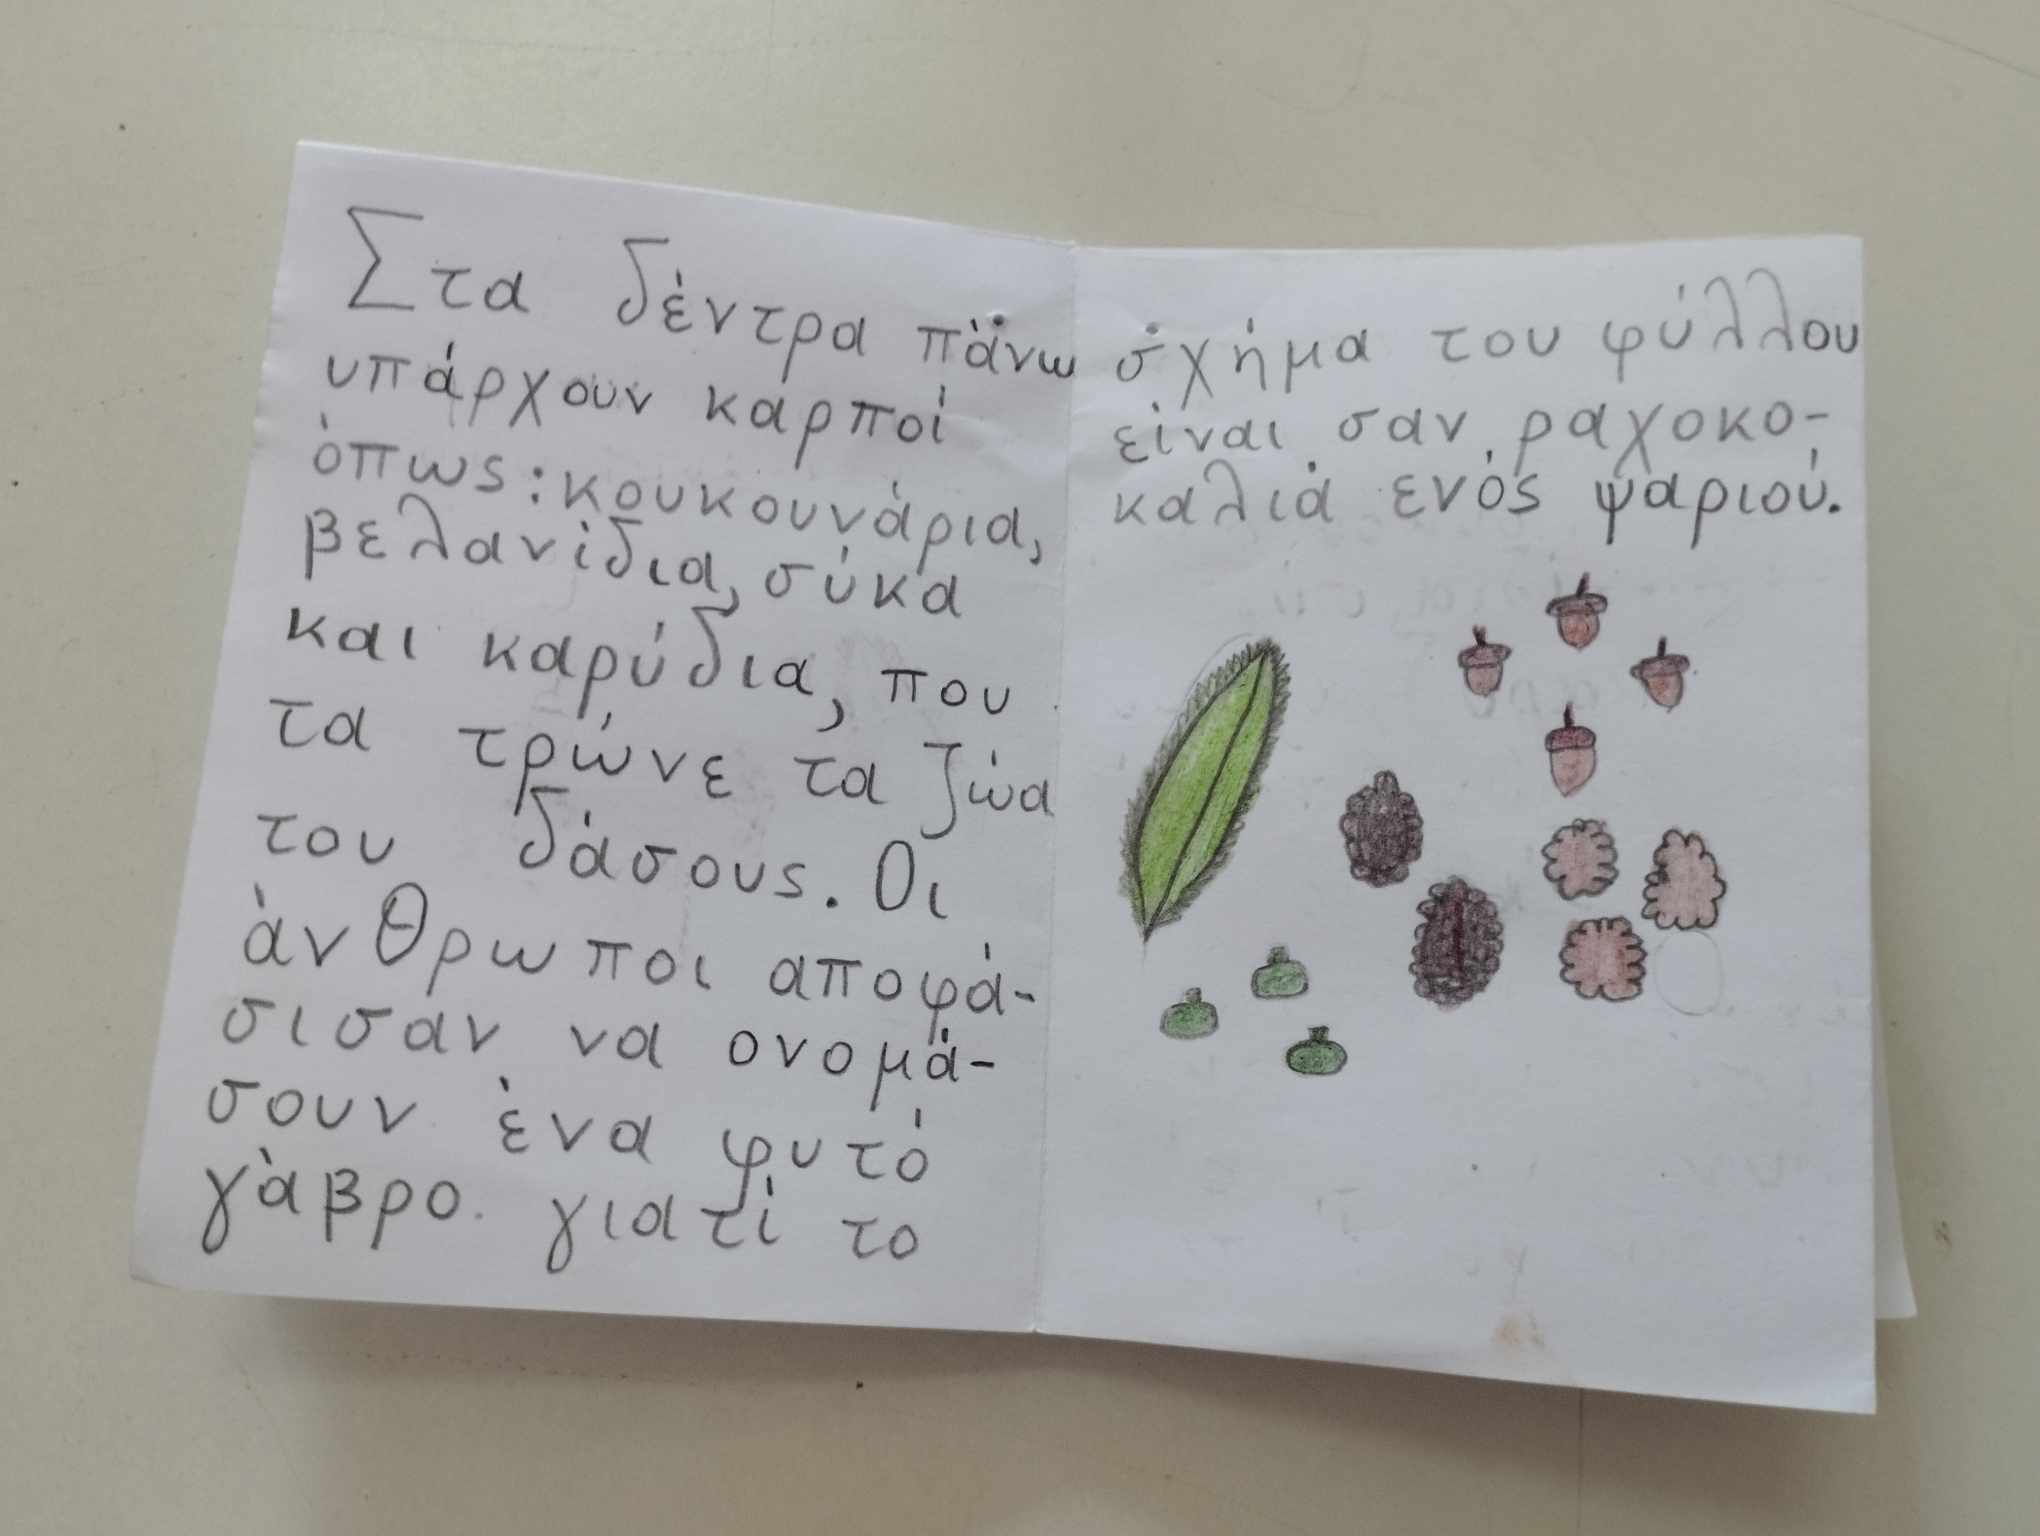 Στα δέντρα πάνω
υπάρχουν καρποί
όπως: κουκουνάρια,
βελανίδια, σύκα
και καρύδια, που
τα τρώνε τα ζώα
του δάσους. Οι
άνθρωποι αποφά-
σισαν να ονομά-
σουν ένα φυτό
γάβρο. γιατί το
σχήμα του φύλλου
είναι σαν ραχοκο-
καλιά ενός ψαριού.